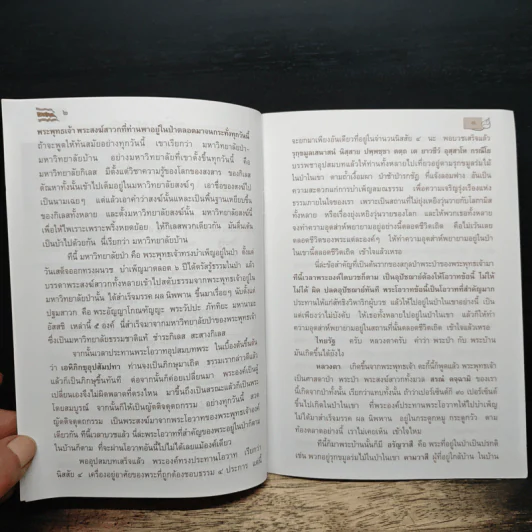 ๒
พระพุทธเจ้า พระสงฆ์สาวกที่ท่านพาอยู่ในป่าตลอดมาจนกระทั่งทุกวันนี้
ถ้าจะพูดให้ทันสมัยอย่างทุกวันนี้ เขาเรียกว่า มหาวิทยาลัยป่า-
มหาวิทยาลัยบ้าน อย่างมหาวิทยาลัยที่เขาตั้งขึ้นทุกวันนี้ คือ
มหาวิทยาลัยกิเลส มีตั้งแต่วิชาความรู้ของโลกของสงสาร ของกิเลส
ตัณหาทั้งนั้นเข้าไปเดิมอยู่ในมหาวิทยาลัยสงฆ์ๆ เอาชื่อของสงฆ์ไป
เป็นนามเฉยๆ แต่แล้วเอาคำว่าสงฆ์นั้นแหละเป็นพื้นฐานเหยียบขึ้น
ของกิเลสทั้งหลาย และตั้งมหาวิทยาลัยสงฆ์นั้น มหาวิทยาลัยสงฆ์นี้
เพื่อให้ไพเราะเพราะพริ้งหยดย้อย ให้กิเลสพวกเดียวกัน มันตื่นเต้น
เป็นบ้าไปด้วยกัน นี่เรียกว่า มหาวิทยาลัยบ้าน
ทีนี้ มหาวิทยาลัยป่า คือ พระพุทธเจ้าทรงบำเพ็ญอยู่ในป่า ตั้งแต่
วันเสด็จออกทรงผนวช บำเพ็ญมาตลอด ๖ ปีได้ตรัสรู้ธรรมในป่า แล้ว
บรรดาพระสงฆ์ทั้งหลายเข้าไปสดับธรรมจากพระพุทธเจ้าอยู่ใน
มหาวิทยาลัยป่านั้น ได้สำเร็จมรรค ผล นิพพาน ขึ้นมาเรื่อยๆ นับตั้งแต่
ปฐมสาวก คือ พระอัญญาโกณฑัญญะ พระวัปปะ ภัททิยะ มหานามะ
อัสสชิ เหล่านี้ ๕ องค์ นี่สำเร็จมาจากมหาวิทยาลัยป่าของพระพุทธเจ้า
ซึ่งเป็นมหาวิทยาลัยธรรมชาติแท้ ชำระกิเลส สะสางกิเลส
จากนั้นเวลาประทานพระโอวาทอุปสมบทพระ ในเบื้องต้นขึ้นต้น
ว่า เอหิภิกขุอุปสัมปทา ท่านจงเป็นภิกษุมาเถิด ธรรมเรากล่าวดีแล้ว
แล้วก็เป็นภิกษุขึ้นทันที ต่อจากนั้นก็ค่อยเปลี่ยนมา พระองค์เป็นผู้
เปลี่ยนเองจึงไม่ผิดพลาดที่ตรงไหน มาขึ้นไปถึงสรณะแล้วก็เป็นพระ
โดยสมบูรณ์ จากนั้นก็ให้เป็นญัตติจตุตถกรรม อย่างทุกวันนี้ สวด
ญัตติจตุตถกรรม เป็นพระสงฆ์มาจากพระโอวาทของพระพุทธเจ้าองค์
เดียวกัน ที่นี้เวลาบวชแล้ว นี่ล่ะพระโอวาทที่สำคัญของพระอยู่ในป่าก็ตาม
ในบ้านก็ตาม ที่จะผ่านโอวาทอันนี้ไปไม่ได้เลยแม้องค์เดียว
พออุปสมบทเสร็จแล้ว พระองค์ทรงประทานโอวาท เรียกว่า
นิสสัย ๔ เครื่องอยู่อาศัยของพระที่ถูกต้องชอบธรรม ๔ ประการ แต่นี้
๓
จะยกมาเพียงอันเดียวที่อยู่ในจำนวนนิสสัย ๔ นะ พอบวชเสร็จแล้ว
รุกฺขมูลเสนาสนํ นิสฺสาย ปพฺพชฺชา ตตฺถ เต ยาวชีวํ อุสฺสาโห กรณีโย
บรรพชาอุปสมบทแล้วให้ท่านทั้งหลายไปเที่ยวอยู่ตามรุกขมูลร่มไม้
ในป่าในเขา ตามถ้ำเงื้อมผา ป่าช้าป่ารกชัฏ ที่แจ้งลอมฟาง อันเป็น
ความสะดวกแก่การบำเพ็ญสมณธรรม เพื่อความเจริญรุ่งเรืองแห่ง
ธรรมภายในใจของเรา เพราะเป็นสถานที่ไม่ยุ่งเหยิงวุ่นวายกับโลกามิส
ทั้งหลาย หรือเรื่องยุ่งเหยิงวุ่นวายของโลก และให้พวกเธอทั้งหลาย
จงทำความอุตส่าห์พยายามอยู่อย่างนี้ตลอดชีวิตเถิด คือไม่เว้นเลย
ตลอดชีวิตของพระแต่ละองค์ๆ ให้ทำความอุตส่าห์พยายามอยู่ในป่า
ในเขานี้ตลอดชีวิตเถิด เข้าใจแล้วเหรอ
นี่ล่ะข้อสำคัญที่เป็นต้นรากของสงฆ์ว่าวัดป่าพระป่าของพระพุทธเจ้ามา
ทีนี้เวลาพระองค์ใดบวชก็ตาม เป็นอุปัชฌาย์ต้องให้โอวาทข้อนี้ ไม่ให้
ไม่ได้ ผิด ปลดอุปัชฌาย์ทันที พระโอวาทข้อนี้เป็นที่สำคัญมาก
ประทานให้แก่สัทธิวิหาริกผู้บวช แล้วให้ไปอยู่ในป่าในเขาอย่างนี้ เป็น
แต่เพียงว่าไม่บังคับ ให้เธอทั้งหลายไปอยู่ในป่าในเขา แล้วก็ให้ทำ
ความอุตส่าห์พยายามอยู่ในสถานที่นั้นตลอดชีวิตเถิด เข้าใจแล้วเหรอ
ไทยรัฐ ครับ หลวงตาครับ คำว่า พระป่า กับ พระบ้าน
มันเกิดขึ้นได้ยังไง
หลวงตา เกิดขึ้นจากพระพุทธเจ้า ตะกี้นี้ก็พูดแล้ว พระพุทธเจ้า
เป็นศาสดาป่า พระป่า พระสงฆ์สาวกทั้งมวล สรณํ คจฺฉามิ ของเรา
นี้เกิดจากป่าทั้งนั้น เรียกว่าแทบทั้งนั้น ถ้าว่าเปอร์เซ็นต์ก็ ๙๐ เปอร์เซ็นต์
ขึ้นไปเกิดในป่าในเขา ที่พระองค์ประทานพระโอวาทให้ไปบำเพ็ญ
ไม่ได้มาสำเร็จมรรค ผล นิพพาน อยู่ในกระดูกหมู กระดูกวัว ตาม
ท้องตลาดอย่างนี้ เราไม่เคยเห็น เข้าใจไหม
ทีนี้ก็มาพระบ้านนั้นก็มี อรัญวาสี คือ พระที่อยู่ในป่าเป็นปรกติ
เช่น พวกอยู่รุกขมูลร่มไม้ในป่าในเขา คามวาสี ผู้ที่อยู่ใกล้บ้าน ในบ้าน